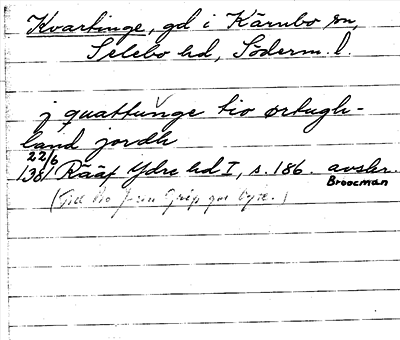 Kvartinge, gd i Kärnbo sn,
Selebo hd, Söderm. l.
j quattunge tio ørtugh-
land jordh
22/6
1381 Rääf Ydre hd I, s. 186. avskr.
Broocman
(Till Bo Jonsson Grip gm byte.)